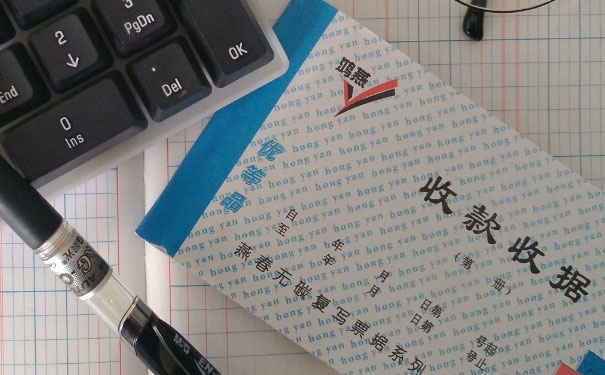 2
↓
3
PgDn
End
.
Del
OK
0
Ins
鸿燕
优等品
hong yan hong yan hong yan
收款收据
(第 册)
自 年 月 日第 号起
至 年 月 日第 号止
燕春无碳复写票据系列
M&G